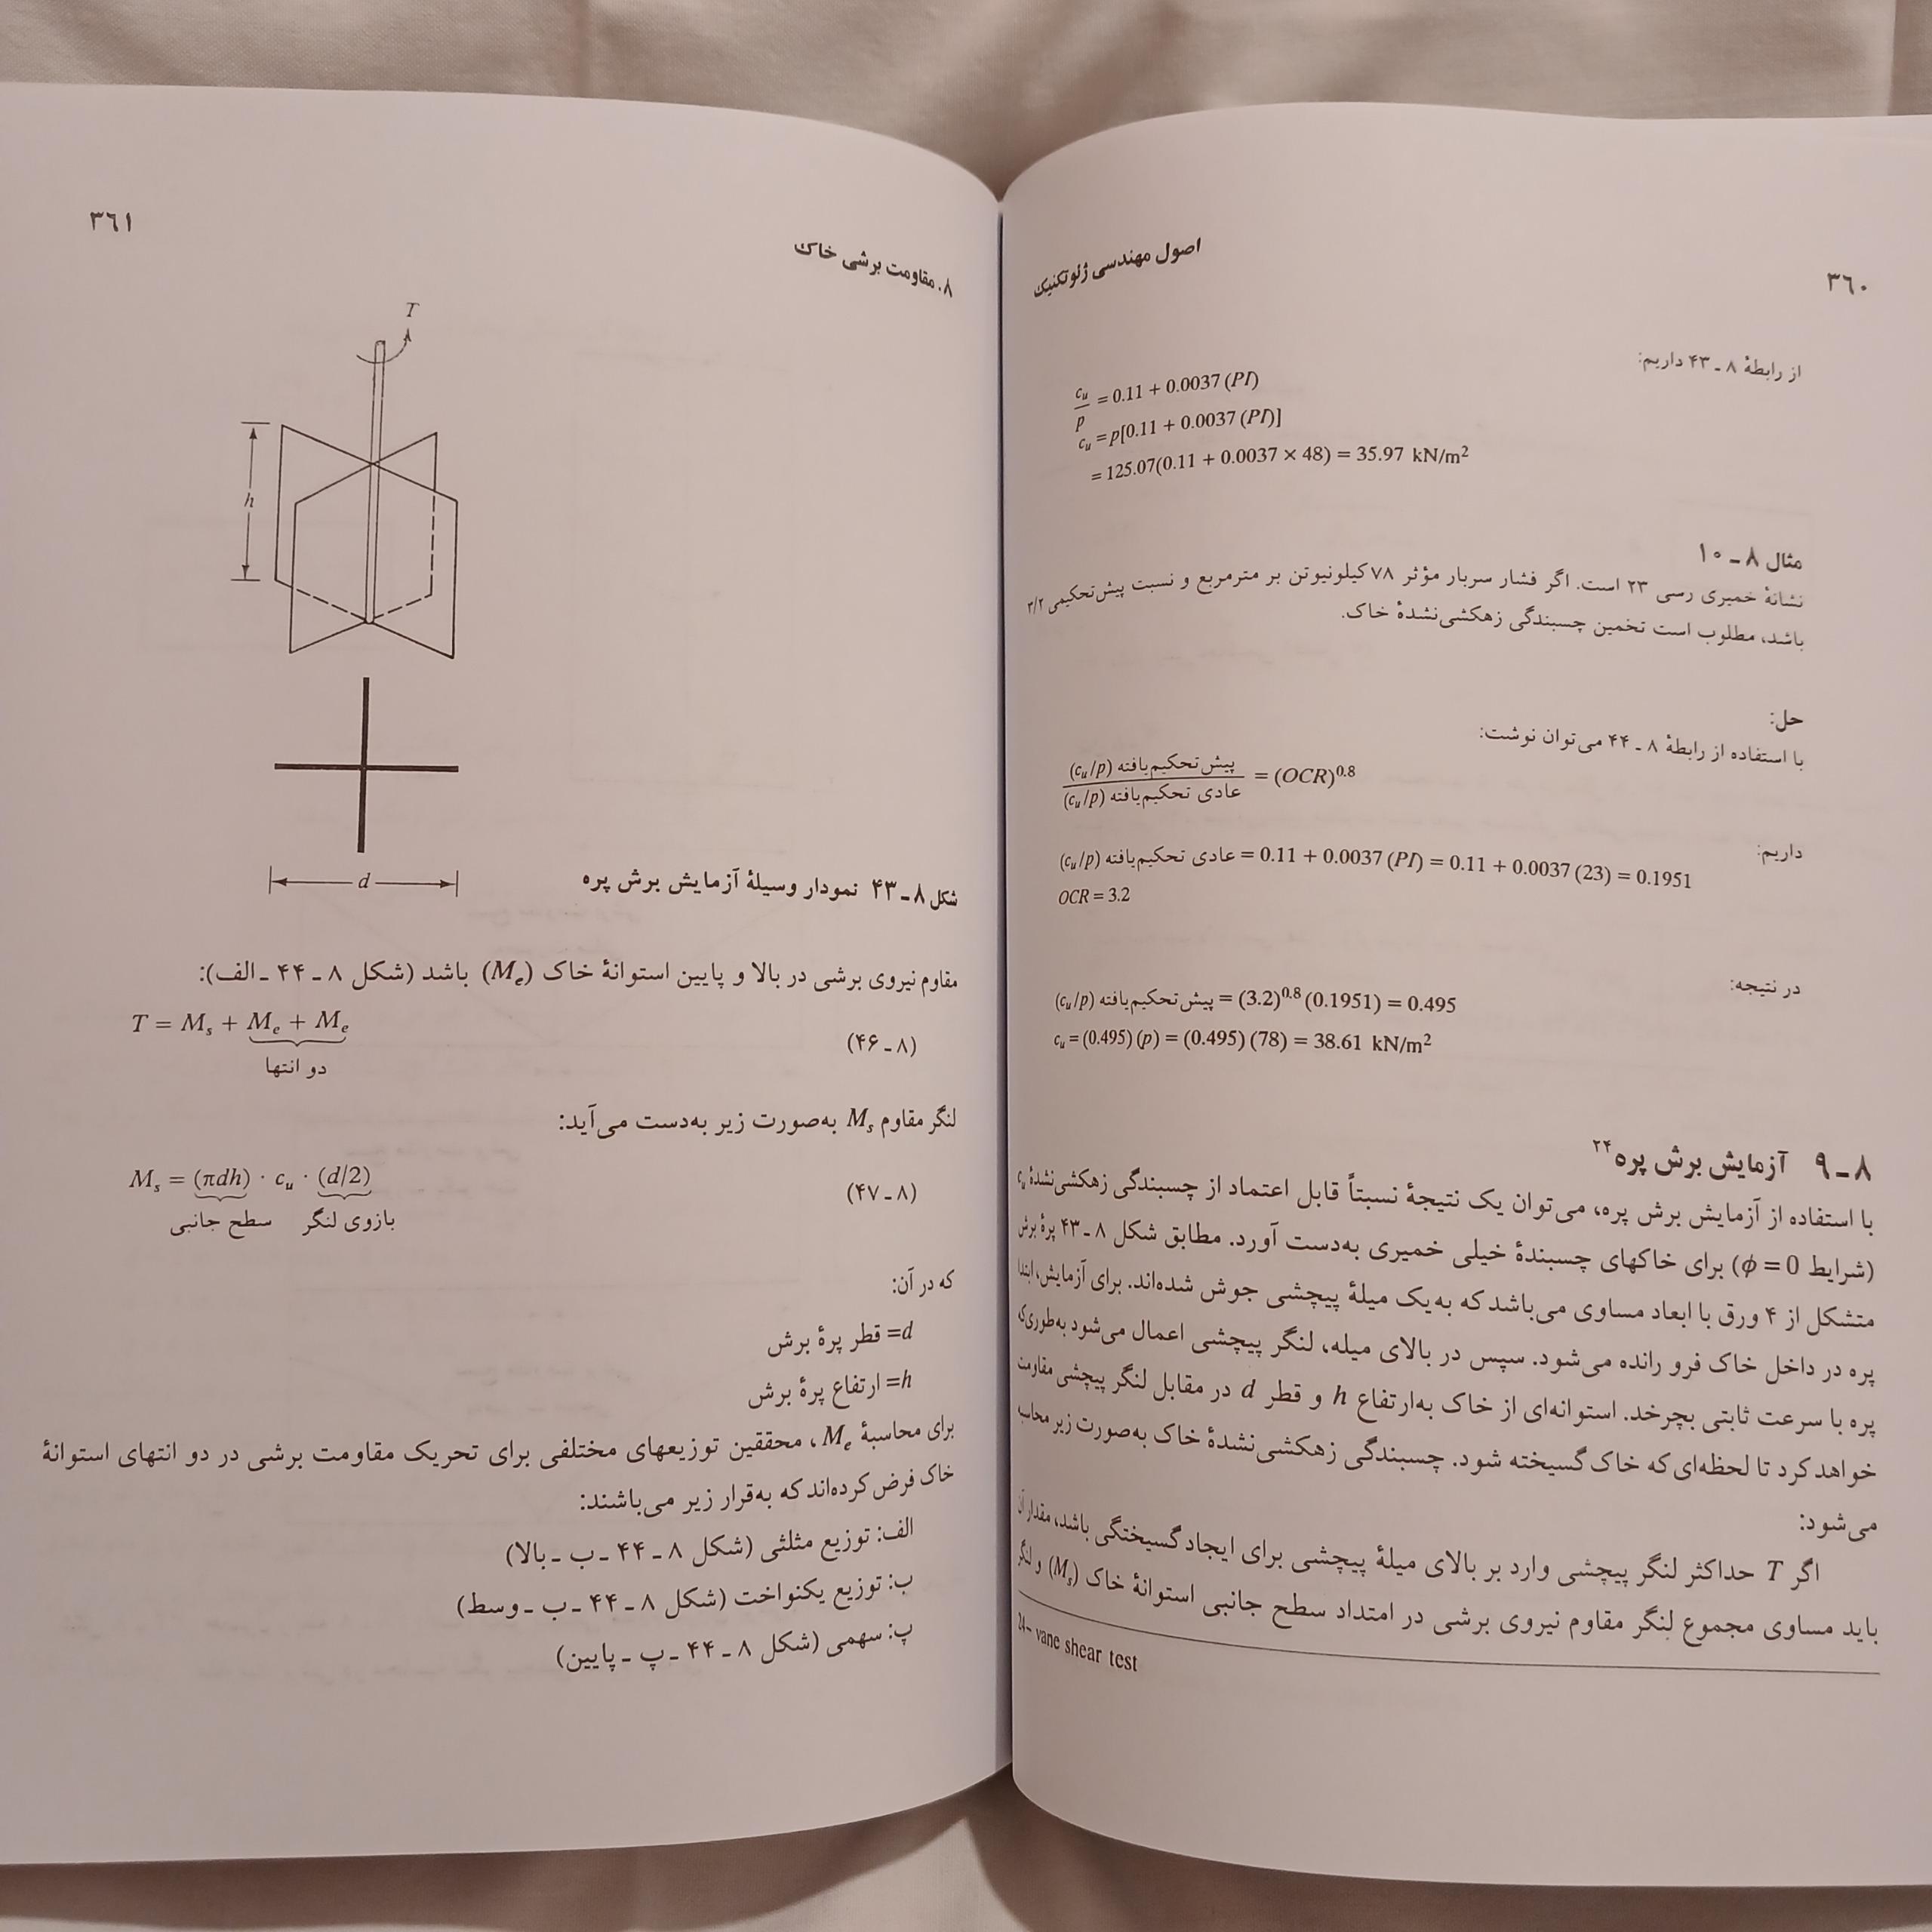 ۳۶۰
اصول مهندسی ژئوتکنیک
از رابطهٔ ۸ ـ ۴۳ داریم:
c_u/p = 0.11 + 0.0037 (PI)
c_u = p[0.11 + 0.0037 (PI)]
= 125.07(0.11 + 0.0037 × 48) = 35.97 kN/m²
مثال ۸ ـ ۱۰
نشانهٔ خمیری رسی ۲۳ است. اگر فشار سربار مؤثر ۷۸ کیلونیوتن بر مترمربع و نسبت پیش‌تحکیمی ۳/۲
باشد، مطلوب است تخمین چسبندگی زهکشی‌نشدهٔ خاک.
حل:
با استفاده از رابطهٔ ۸ ـ ۴۴ می‌توان نوشت:
(c_u/p) پیش‌تحکیم‌یافته / (c_u/p) عادی تحکیم‌یافته = (OCR)^0.8
داریم:
(c_u/p) عادی تحکیم‌یافته = 0.11 + 0.0037 (PI) = 0.11 + 0.0037 (23) = 0.1951
OCR = 3.2
در نتیجه:
(c_u/p) پیش‌تحکیم‌یافته = (3.2)^0.8 (0.1951) = 0.495
c_u = (0.495) (p) = (0.495) (78) = 38.61 kN/m²
۸ ـ ۹ آزمایش برش پره۲۴
با استفاده از آزمایش برش پره، می‌توان یک نتیجهٔ نسبتاً قابل اعتماد از چسبندگی زهکشی‌نشدهٔ c_u
(شرایط ϕ = 0) برای خاکهای چسبندهٔ خیلی خمیری به‌دست آورد. مطابق شکل ۸ ـ ۴۳ پرهٔ برش
متشکل از ۴ ورق با ابعاد مساوی می‌باشد که به یک میلهٔ پیچشی جوش شده‌اند. برای آزمایش، ابتدا
پره در داخل خاک فرو رانده می‌شود. سپس در بالای میله، لنگر پیچشی اعمال می‌شود به‌طوری‌که
پره با سرعت ثابتی بچرخد. استوانه‌ای از خاک به‌ارتفاع h و قطر d در مقابل لنگر پیچشی مقاومت
خواهد کرد تا لحظه‌ای که خاک گسیخته شود. چسبندگی زهکشی‌نشدهٔ خاک به‌صورت زیر محاسبه
می‌شود:
اگر T حداکثر لنگر پیچشی وارد بر بالای میلهٔ پیچشی برای ایجاد گسیختگی باشد، مقدار آن
باید مساوی مجموع لنگر مقاوم نیروی برشی در امتداد سطح جانبی استوانهٔ خاک (M_s) و لنگر
24– vane shear test
۸. مقاومت برشی خاک
۳۶۱
T
h
d
شکل ۸ ـ ۴۳ نمودار وسیلهٔ آزمایش برش پره
مقاوم نیروی برشی در بالا و پایین استوانهٔ خاک (M_e) باشد (شکل ۸ ـ ۴۴ ـ الف):
T = M_s + M_e + M_e
(۸ ـ ۴۶)
دو انتها
لنگر مقاوم M_s به‌صورت زیر به‌دست می‌آید:
M_s = (πdh) · c_u · (d/2)
(۸ ـ ۴۷)
سطح جانبی بازوی لنگر
که در آن:
d= قطر پرهٔ برش
h= ارتفاع پرهٔ برش
برای محاسبهٔ M_e، محققین توزیعهای مختلفی برای تحریک مقاومت برشی در دو انتهای استوانهٔ
خاک فرض کرده‌اند که به‌قرار زیر می‌باشند:
الف: توزیع مثلثی (شکل ۸ ـ ۴۴ ـ ب ـ بالا)
ب: توزیع یکنواخت (شکل ۸ ـ ۴۴ ـ ب ـ وسط)
پ: سهمی (شکل ۸ ـ ۴۴ ـ پ ـ پایین)